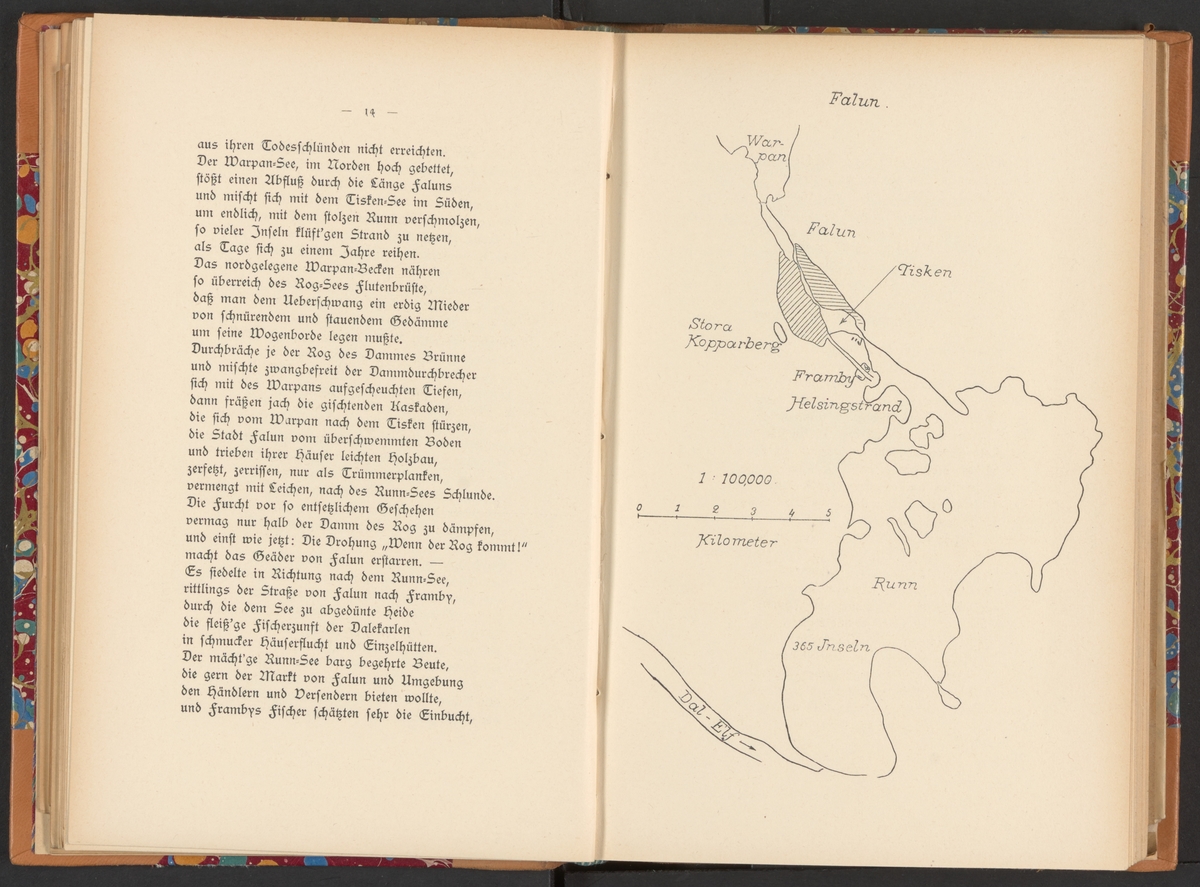 — 14 —
aus ihren Todesschlünden nicht erreichten.
Der Warpan-See, im Norden hoch gebettet,
stößt einen Abfluß durch die Länge Faluns
und mischt sich mit dem Tisken-See im Süden,
um endlich, mit dem stolzen Runn verschmolzen,
so vieler Inseln klüft'gen Strand zu netzen,
als Tage sich zu einem Jahre reihen.
Das nordgelegene Warpan-Becken nähren
so überreich des Rog-Sees Flutenbrüste,
daß man dem Ueberschwang ein erdig Mieder
von schnürendem und stauendem Gedämme
um seine Wogenborde legen mußte.
Durchbräche je der Rog des Dammes Brünne
und mischte zwangbefreit der Dammdurchbrecher
sich mit des Warpans aufgescheuchten Tiefen,
dann fräßen jach die gischtenden Kaskaden,
die sich vom Warpan nach dem Tisken stürzen,
die Stadt Falun vom überschwemmten Boden
und trieben ihrer Häuser leichten Holzbau,
zerfetzt, zerrissen, nur als Trümmerplanken,
vermengt mit Leichen, nach des Runn-Sees Schlunde.
Die Furcht vor so entsetzlichem Geschehen
vermag nur halb der Damm des Rog zu dämpfen,
und einst wie jetzt: Die Drohung „Wenn der Rog kommt!“
macht das Geäder von Falun erstarren. —
Es siedelte in Richtung nach dem Runn-See,
rittlings der Straße von Falun nach Framby,
durch die dem See zu abgedünte Heide
die fleiß'ge Fischerzunft der Dalekarlen
in schmucker Häuserflucht und Einzelhütten.
Der mächt'ge Runn-See barg begehrte Beute,
die gern der Markt von Falun und Umgebung
den Händlern und Versendern bieten wollte,
und Frambys Fischer schätzten sehr die Einbucht,
Falun.
War-
pan
Falun
Tisken
Stora
Kopparberg
Framby
Helsingstrand
1 : 100,000.
0 1 2 3 4 5
Kilometer
Runn
365 Inseln
Dal-Elf